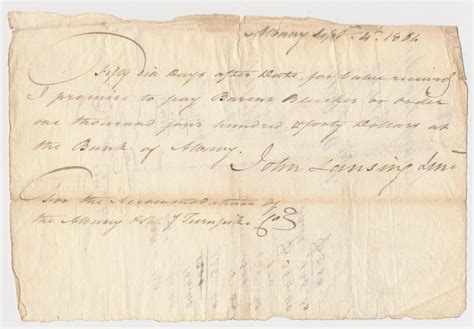 Albany Sept. 4th. 1804
Fifty six Days after Date, for Value received
I promise to pay Barent Bleecker or order
one thousand four hundred & forty Dollars at
the Bank of Albany.
John Lansing Junr
For the Accommodation of
the Albany & Turnpike Co